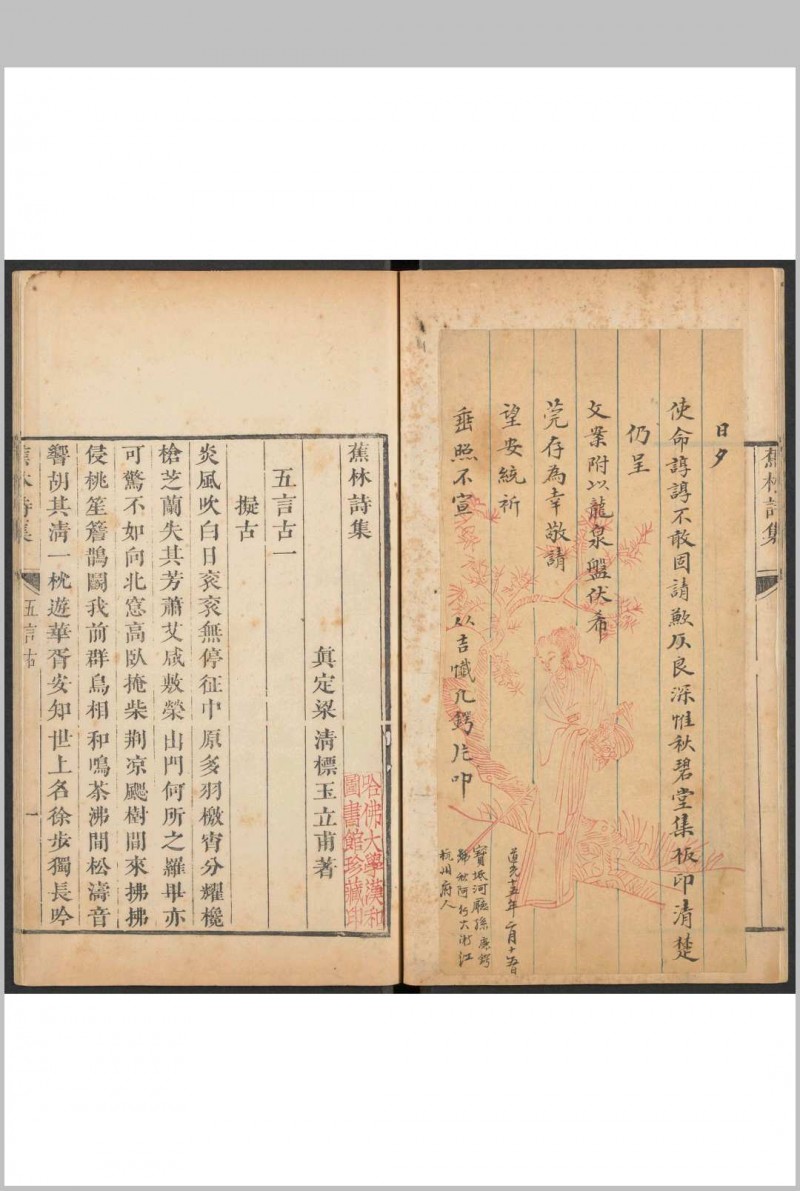 日夕
使命諄諄不敢固請歉仄良深惟秋碧堂集板印清楚
仍呈
文案附以龍泉盤伏希
莞存為幸敬請
望安統祈
垂照不宣
道光十五年二月十五日
杭州府人
蕉林詩集
蕉林詩集
真定梁清標玉立甫著
五言古一
擬古
炎風吹白日袞袞無停征中原多羽檄宵分耀欃
槍芝蘭失其芳蕭艾咸敷榮出門何所之羅畢亦
可驚不如向北窓高臥掩柴荆凉颸樹間來拂拂
侵桃笙簷鵲闘我前群鳥相和鳴茶沸聞松濤音
響胡其清一枕遊華胥安知世上名徐步獨長吟
蕉林詩集
五言古
一
哈佛大學漢和
圖書館珍藏印